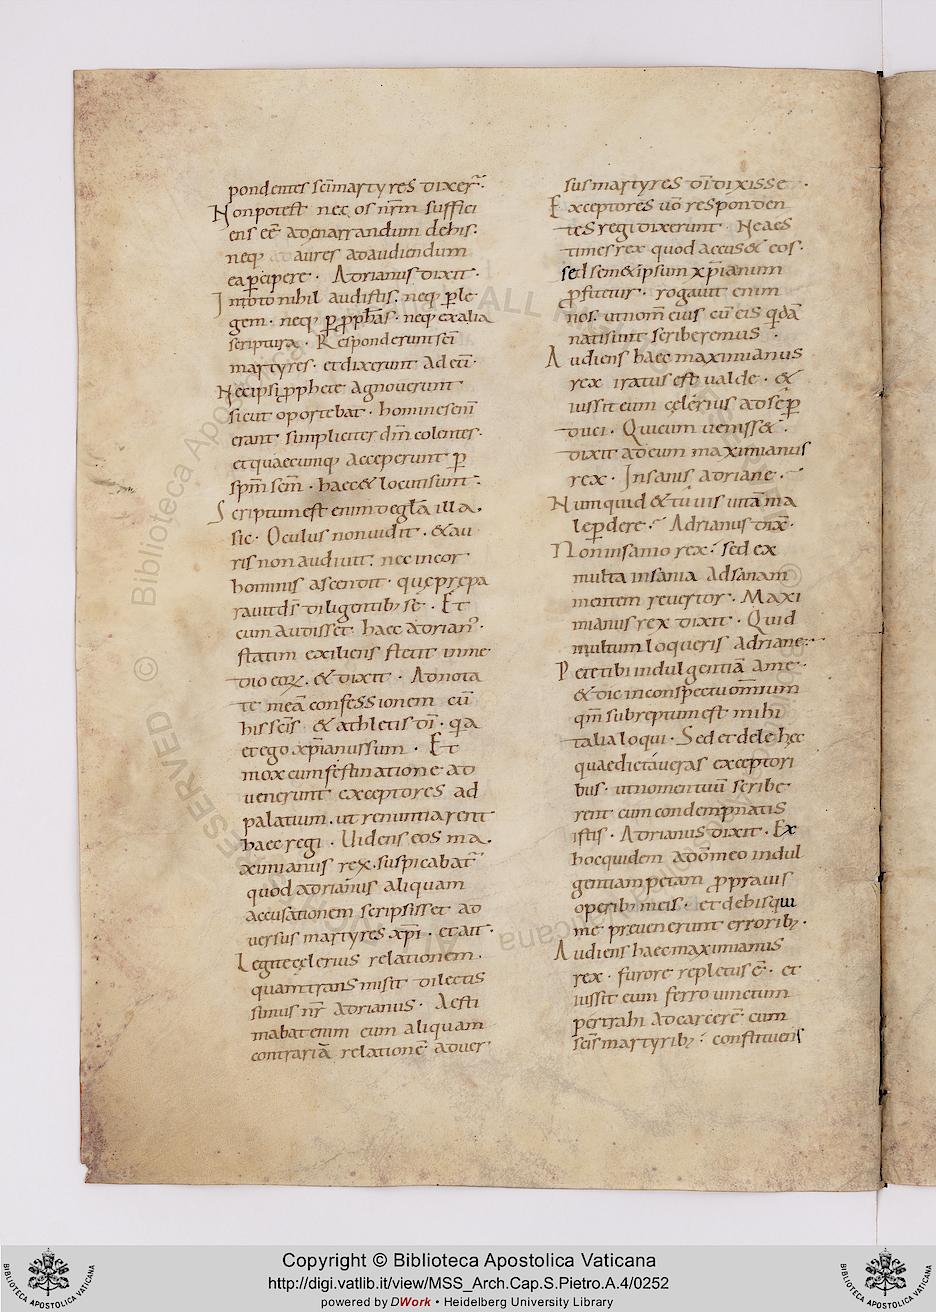 pondentes sc̄i martyres dixer̄.
Non potest nec os nr̄m suffici
ens ee᷃ ad enarrandum de his.
neq; aures ad audiendum
ea p̲cipere. Adrianus dixit.
In toto nihil audistis. neq; p̲ le
gem. neq; p̲ pph̄as. neq; ex alia
scriptura. Responderunt sc̄i
martyres. et dixerunt ad eū.
Nec ipsi pphete agnoverunt
sicut oportebat. homines eni
erant simpliciter dn̄m colentes.
et quaecumq; acceperunt p̲
spm̄ sc̄m. haec & locuti sunt.
Scriptum est enim de gl̄a illa.
sic. Oculus non uidit. & au
ris non audiuit. nec in cor
hominis ascendit. quę prępa
rauit ds̄ diligentib; se. Et
cum audisset haec adrian᾽.
statim exiliens stetit in me
dio eoꝝ. & dixit. Adnota
te meā confessionem cū
his sc̄is & athletis dī. qa
et ego xp̄ianus sum. Et
mox cum festinatione ad
uenerunt exceptores ad
palatium. ut renuntiarent
haec regi. Uidens eos ma
ximianus rex. suspicabat̄
quod adrianus aliquam
accusationem scripsisset ad
versus martyres xp̄i. et ait.
Legite cęlerius relationem.
quam transmisit dilectis
simus nr̄ adrianus. Aesti
mabat enim eum aliquam
contrariā relationē adver
sus martyres dī dixisse.
Exceptores uō responden
tes regi dixerunt. Ne aes
times rex quod accus& eos.
sed semetipsum xp̄ianum
p̲fitetur. rogauit enim
nos. ut nom̄ eius cū eis qdā
nati sunt scriberemus.
Audiens haec maximianus
rex iratus est valde. &
iussit eum cęlerius ad se p̲
duci. Qui cum uenisset.
dixit ad eum maximianus
rex. Insanis adriane.
Numquid & tu uis uitā ma
le p̲dere. Adrianus dix̄.
Non insanio rex. sed ex
multa insania ad sanam
mentem revertor. Maxi
mianus rex dixit. Quid
multum loqueris adriane.
Pete tibi indulgentiā a me.
& dic in conspectu omnium
qm̄ subreptum est mihi
talia loqui. Sed et dele hęc
quae dictaueras exceptori
bus. ut nomen tuū scribe
rent cum condempnatis
istis. Adrianus dixit. Ex
hoc quidem a dō meo indul
gentiam petam p̲ pravis
operib; meis. et de his qui
me prevenerunt errorib;.
Audiens haec maximianus
rex. furore repletus ē. et
iussit eum ferro vinctum
pertrahi ad carcerē cum
sc̄is martyrib;. constituens
Copyright © Biblioteca Apostolica Vaticana
http://digi.vatlib.it/view/MSS_Arch.Cap.S.Pietro.A.4/0252
powered by DWork • Heidelberg University Library